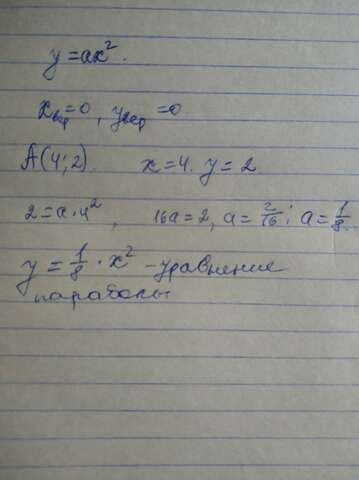 y = ax².
x вер = 0, y вер = 0
A(4; 2). x = 4. y = 2.
2 = a · 4², 16a = 2, a = 2/16; a = 1/8.
y = 1/8 · x² – уравнение
параболы